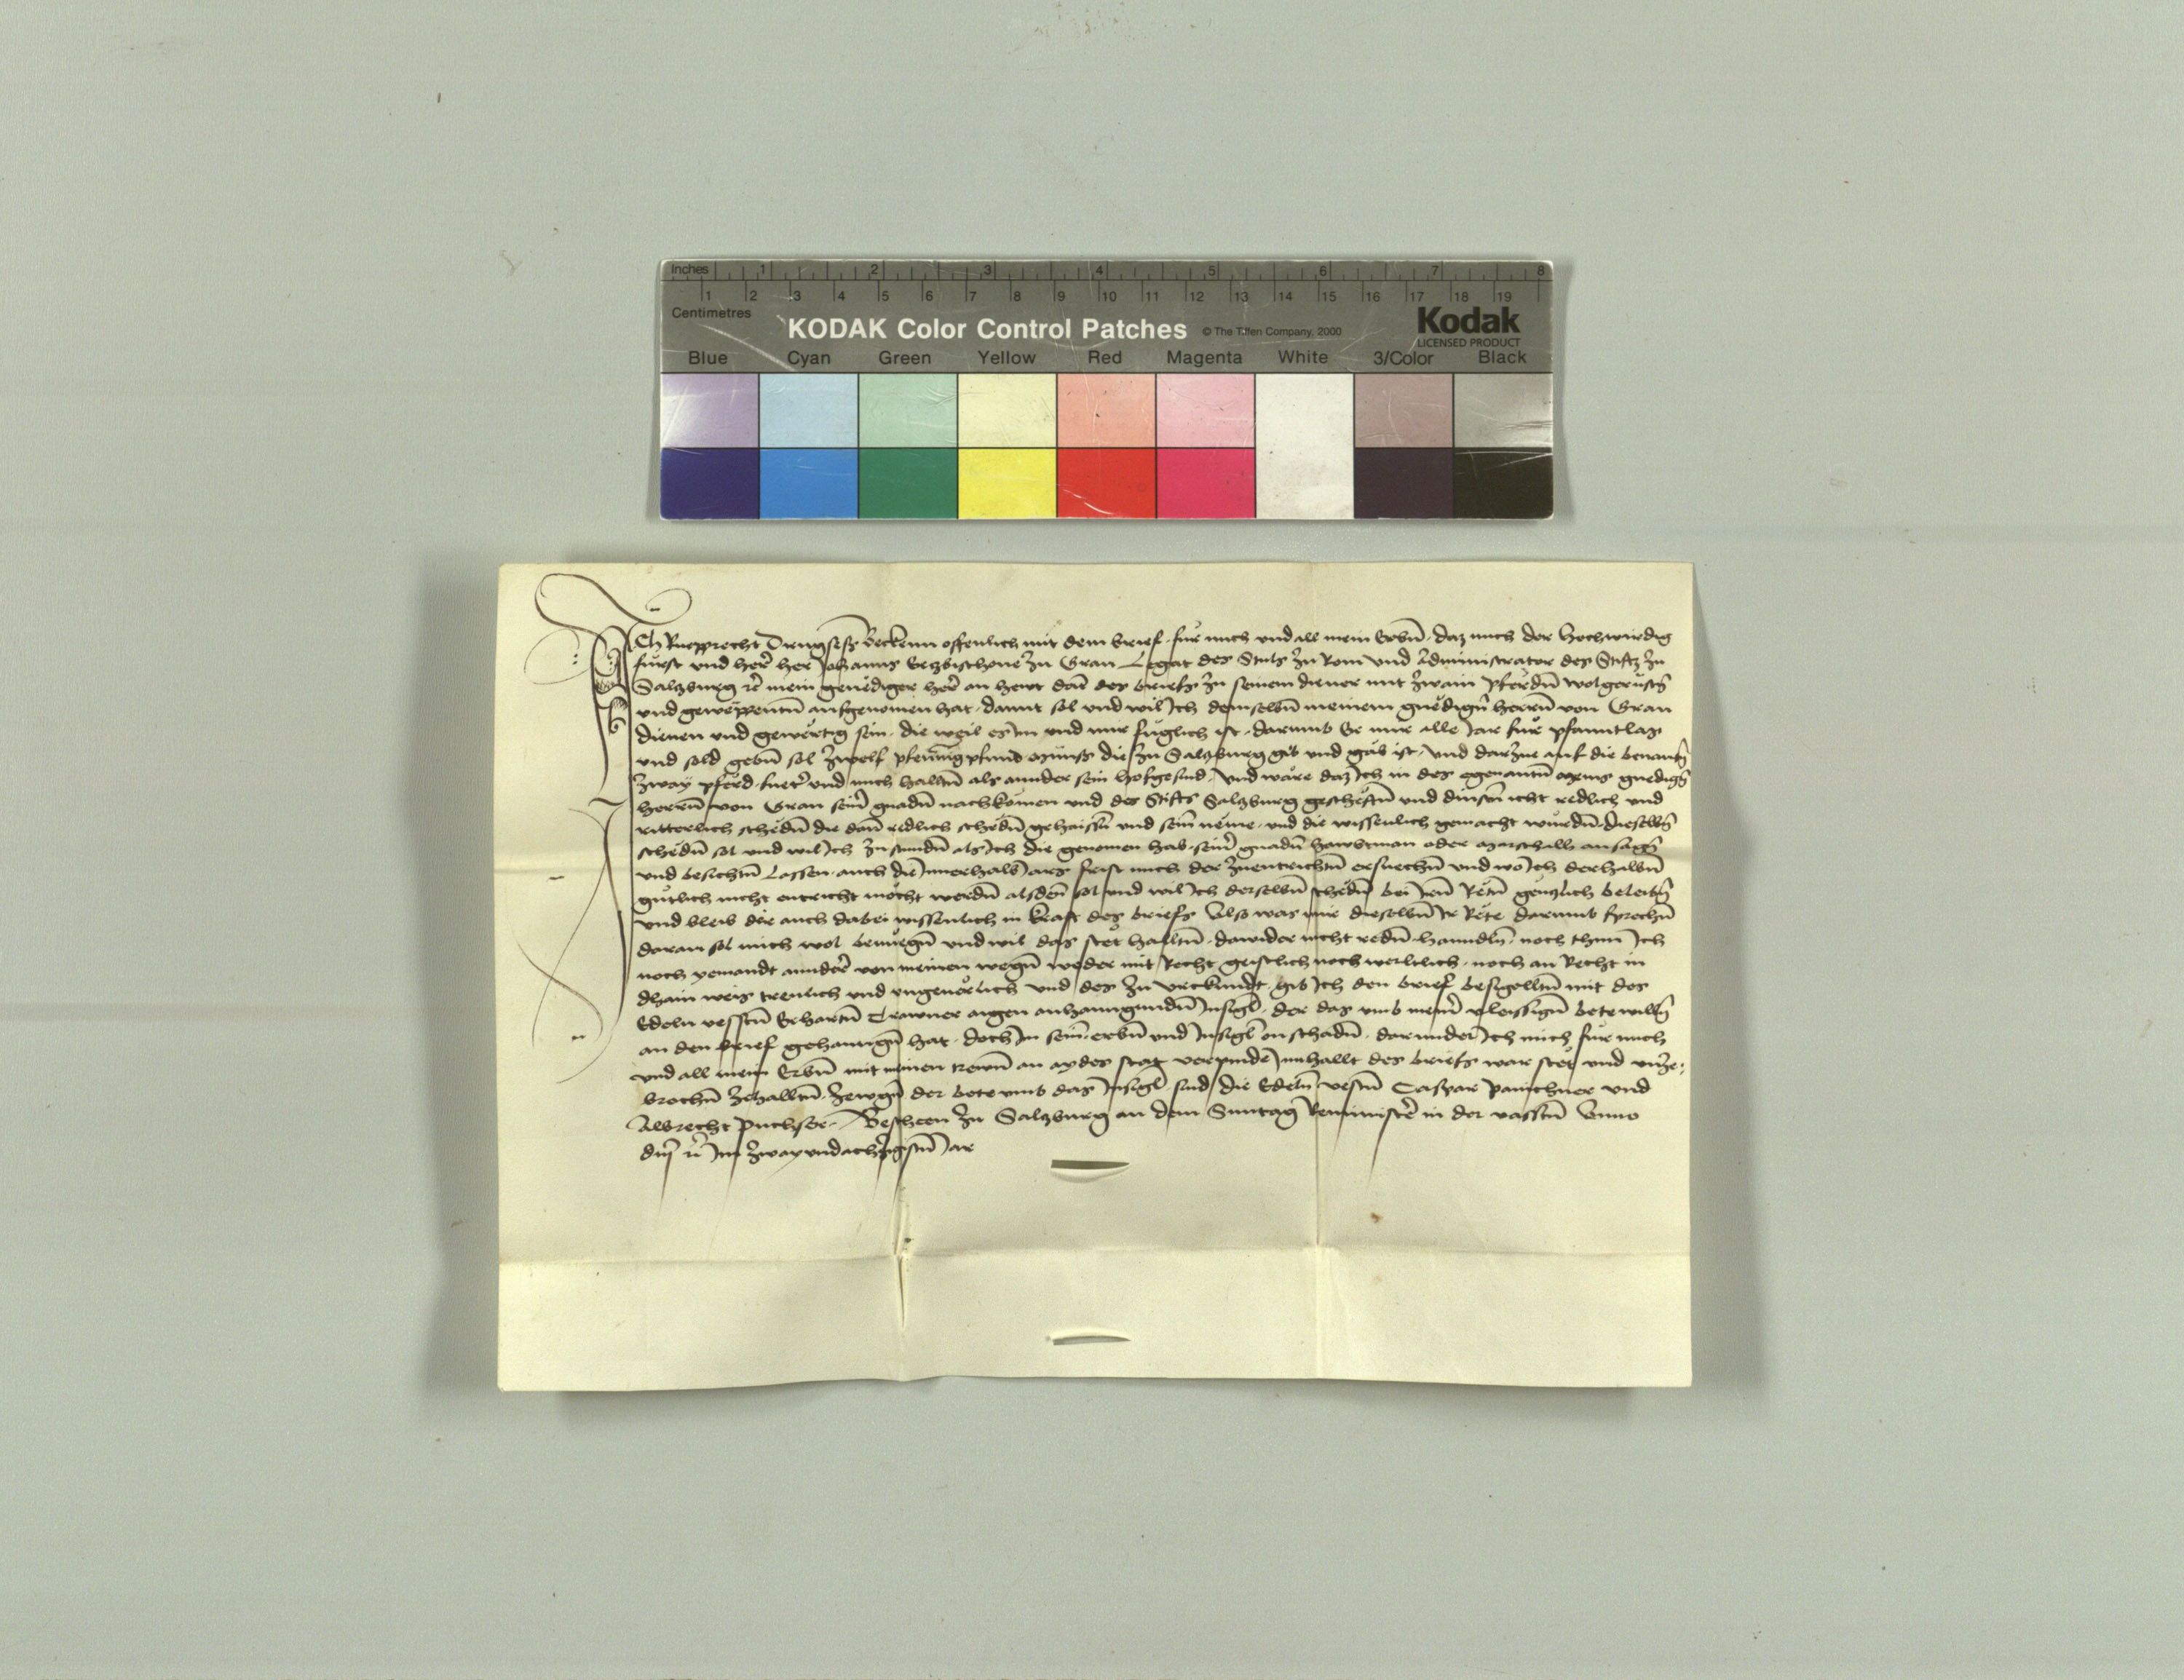 Inches 1 2 3 4 5 6 7 8
1 2 3 4 5 6 7 8 9 10 11 12 13 14 15 16 17 18 19
Centimetres
KODAK Color Control Patches © The Tiffen Company, 2000 Kodak
LICENSED PRODUCT
Blue Cyan Green Yellow Red Magenta White 3/Color Black
Ich Ruepprecht Drugseß Bekenn offenlich mit dem brief fur mich und all mein Erbn̄ daz mich der Hochwirdig
furst und her̄ her Johanns Erzbischove zu Gran Legat des Stuls zu Rom und Administrator des Stiftz zu
Salzburg ꝛc̄ mein genediger her̄ an hewt dat̄ des briefs zu seinem diener mit zwain pferdn̄ wolgerustn̄
und gewëppentn̄ aufgenomen hat damit sol und wil Ich demselbn̄ meinem gnëdign̄ herrn̄ von Gran
dienen und gewërtig sein die weil es Im und mir fuglich ist darumb Er mir alle Jar fur pfanntlas
und sold gebn̄ sol zwelf phenn̄ing phund Münss die zu Salzburg gib und gäb ist und darzue auf die benantn̄
zway pferd fuetr̄ und mich halltn̄ als annder sein hofgesind und wäre daz Ich in des egenantn̄ Meins gnedign̄
herrn̄ von Gran sein̄ gnadn̄ nachkomen und des Stifts Salzburg geschëftn̄ und dinstn̄ icht redlich und
ritterlich schëdn̄ die dan̄ redlich schëdn̄ gehaissn̄ und sein nëme und die wissenlich gemacht wurdn̄ dieselbn̄
schëdn̄ sol und wil Ich zu stundn̄ als Ich die genomen hab sein̄ gnadn̄ hawbtman oder Marschallh ansagn̄
und besichtn̄ Lassen auch die Innerhalb Jars frist mich der zuentrichtn̄ ersuechn̄ und wo Ich derhalbn̄
gutlich nicht entricht möcht werdn̄ alsdën̄ sol und wil Ich derselbn̄ schëdn̄ bei Irn̄ Rëtn̄ genzlich beleibn̄
und bleib der auch dabei wissenlich in kraft des briefs Also was mir dieselbn̄ Ir Rëte darumb sprechn̄
daran sol mich wol benuegn̄ und wil das stet halltn̄ dawider nicht redn̄ hanndln̄ noch thun Ich
noch yemandt annder̄ von meinen wegn̄ weder mit Recht geistlich noch werltlich noch an Recht in
dhain weis trewlich und ungeuerlich und des zu vrckundt gib Ich den brief besigelltn̄ mit des
Edeln vesstn̄ Erhartn̄ Trawner aigen anhanngundn̄ Insigl der das umb mein̄ vleissign̄ bete willn̄
an den brief gehanngn̄ hat doch Im sein̄ erbn̄ und Insigl on schadn̄ darunder Ich mich fur mich
und all mein Erbn̄ mit meinen trewn̄ an aydes stat verpinde Innhallt des briefs war stet und unze
brochn̄ zehalltn̄ zewgn̄ der bete umb das Insigl sind die Edeln̄ vestn̄ Caspar Panichner und
Albrecht Puchser Bescheen zu Salzburg an dem Sunntag Reminiscer̄e in der vasstn̄ Anno
dn̄i ꝛc̄ Im zwayundachzigstn̄ Jar